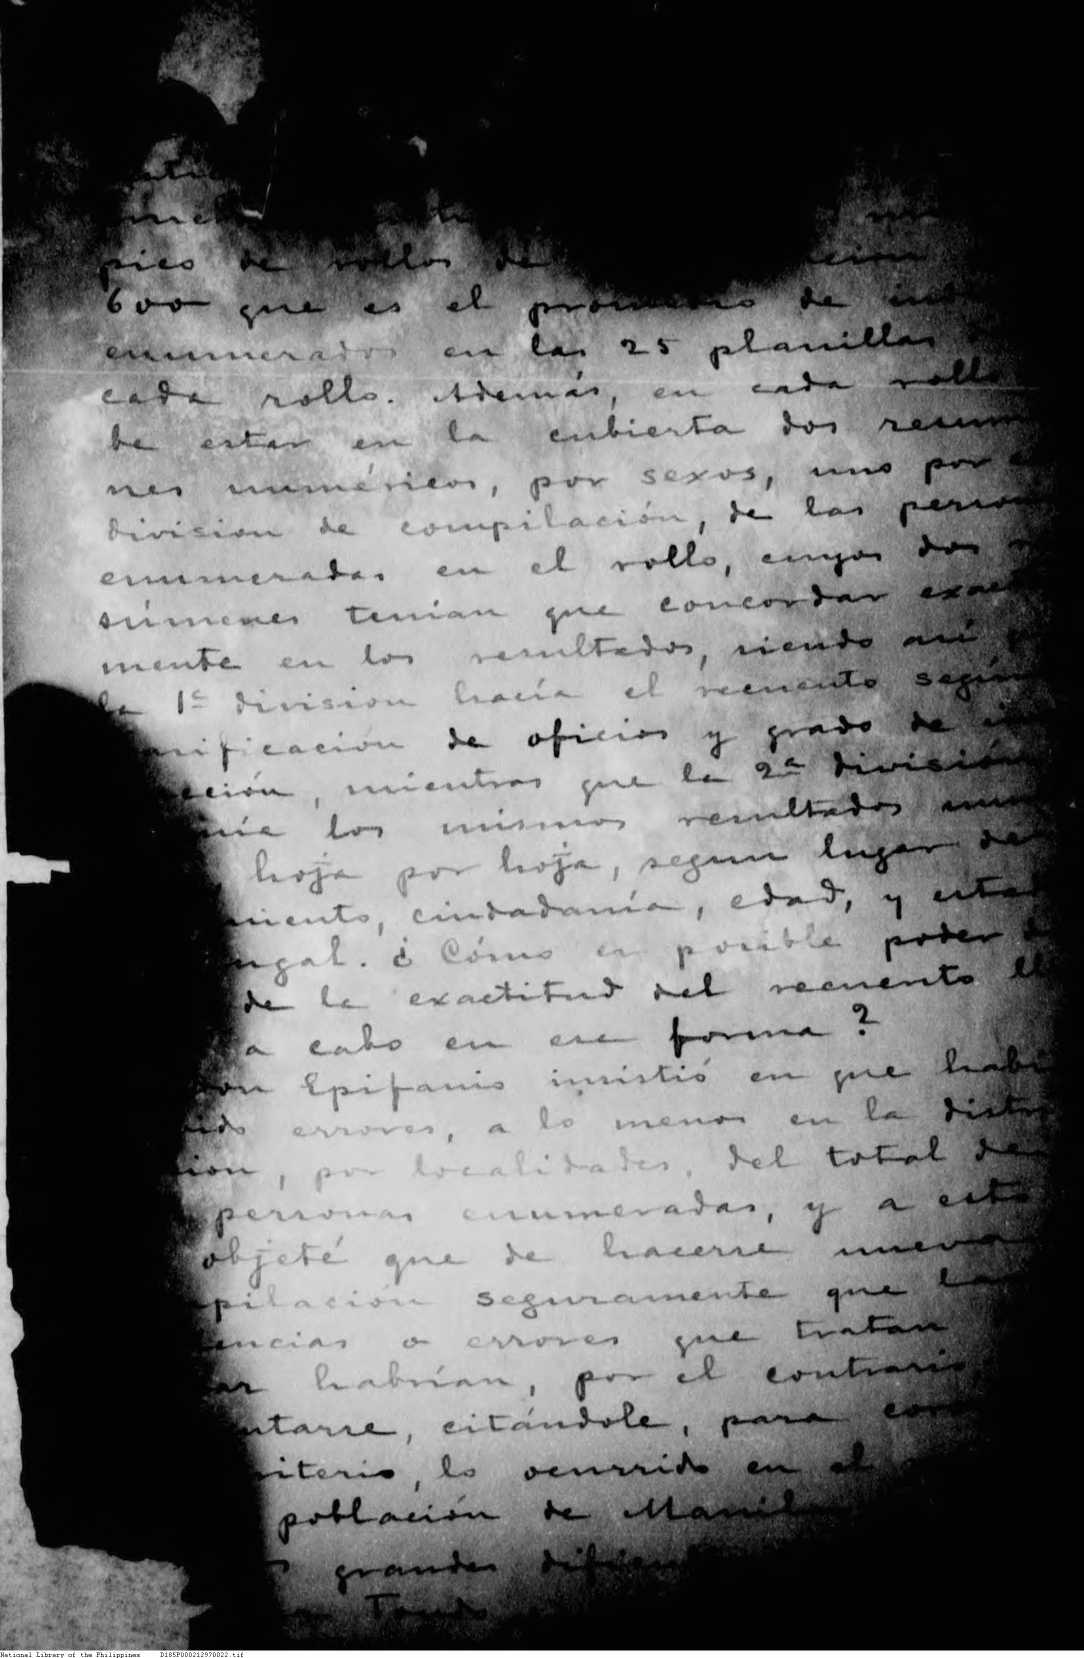 pico de rollos de
600 que es el promedio de
enumerados en las 25 planillas
cada rollo. Además, en cada rollo
be estar en la cubierta dos resum
nes numéricos, por sexos, uno por
division de compilación, de las person
enumeradas en el rollo, cuyos dos
súmenes tenían que concordar exact
mente en los resultados, siendo así
la 1ª division hacía el recuento según
nificación de oficios y grado de
cción, mientras que la 2ª división
los mismos resultados
hoja por hoja, segun lugar de
miento, ciudadanía, edad, y esta
ugal. ¿Cómo es posible poder
de la exactitud del recuento ll
a cabo en esa forma?
on Epifanio insistió en que habí
ido errores, a lo menos en la distr
ion, por localidades, del total de
personas enumeradas, y a esto
objeté que de hacerse nueva
pilación seguramente que la
encias o errores que tratan
ar habrían, por el contrario
ntarse, citándole, para
riterio, lo ocurrido en el
población de Manila
grandes
Tondo
National Library of the Philippines D185P000212970022.tif